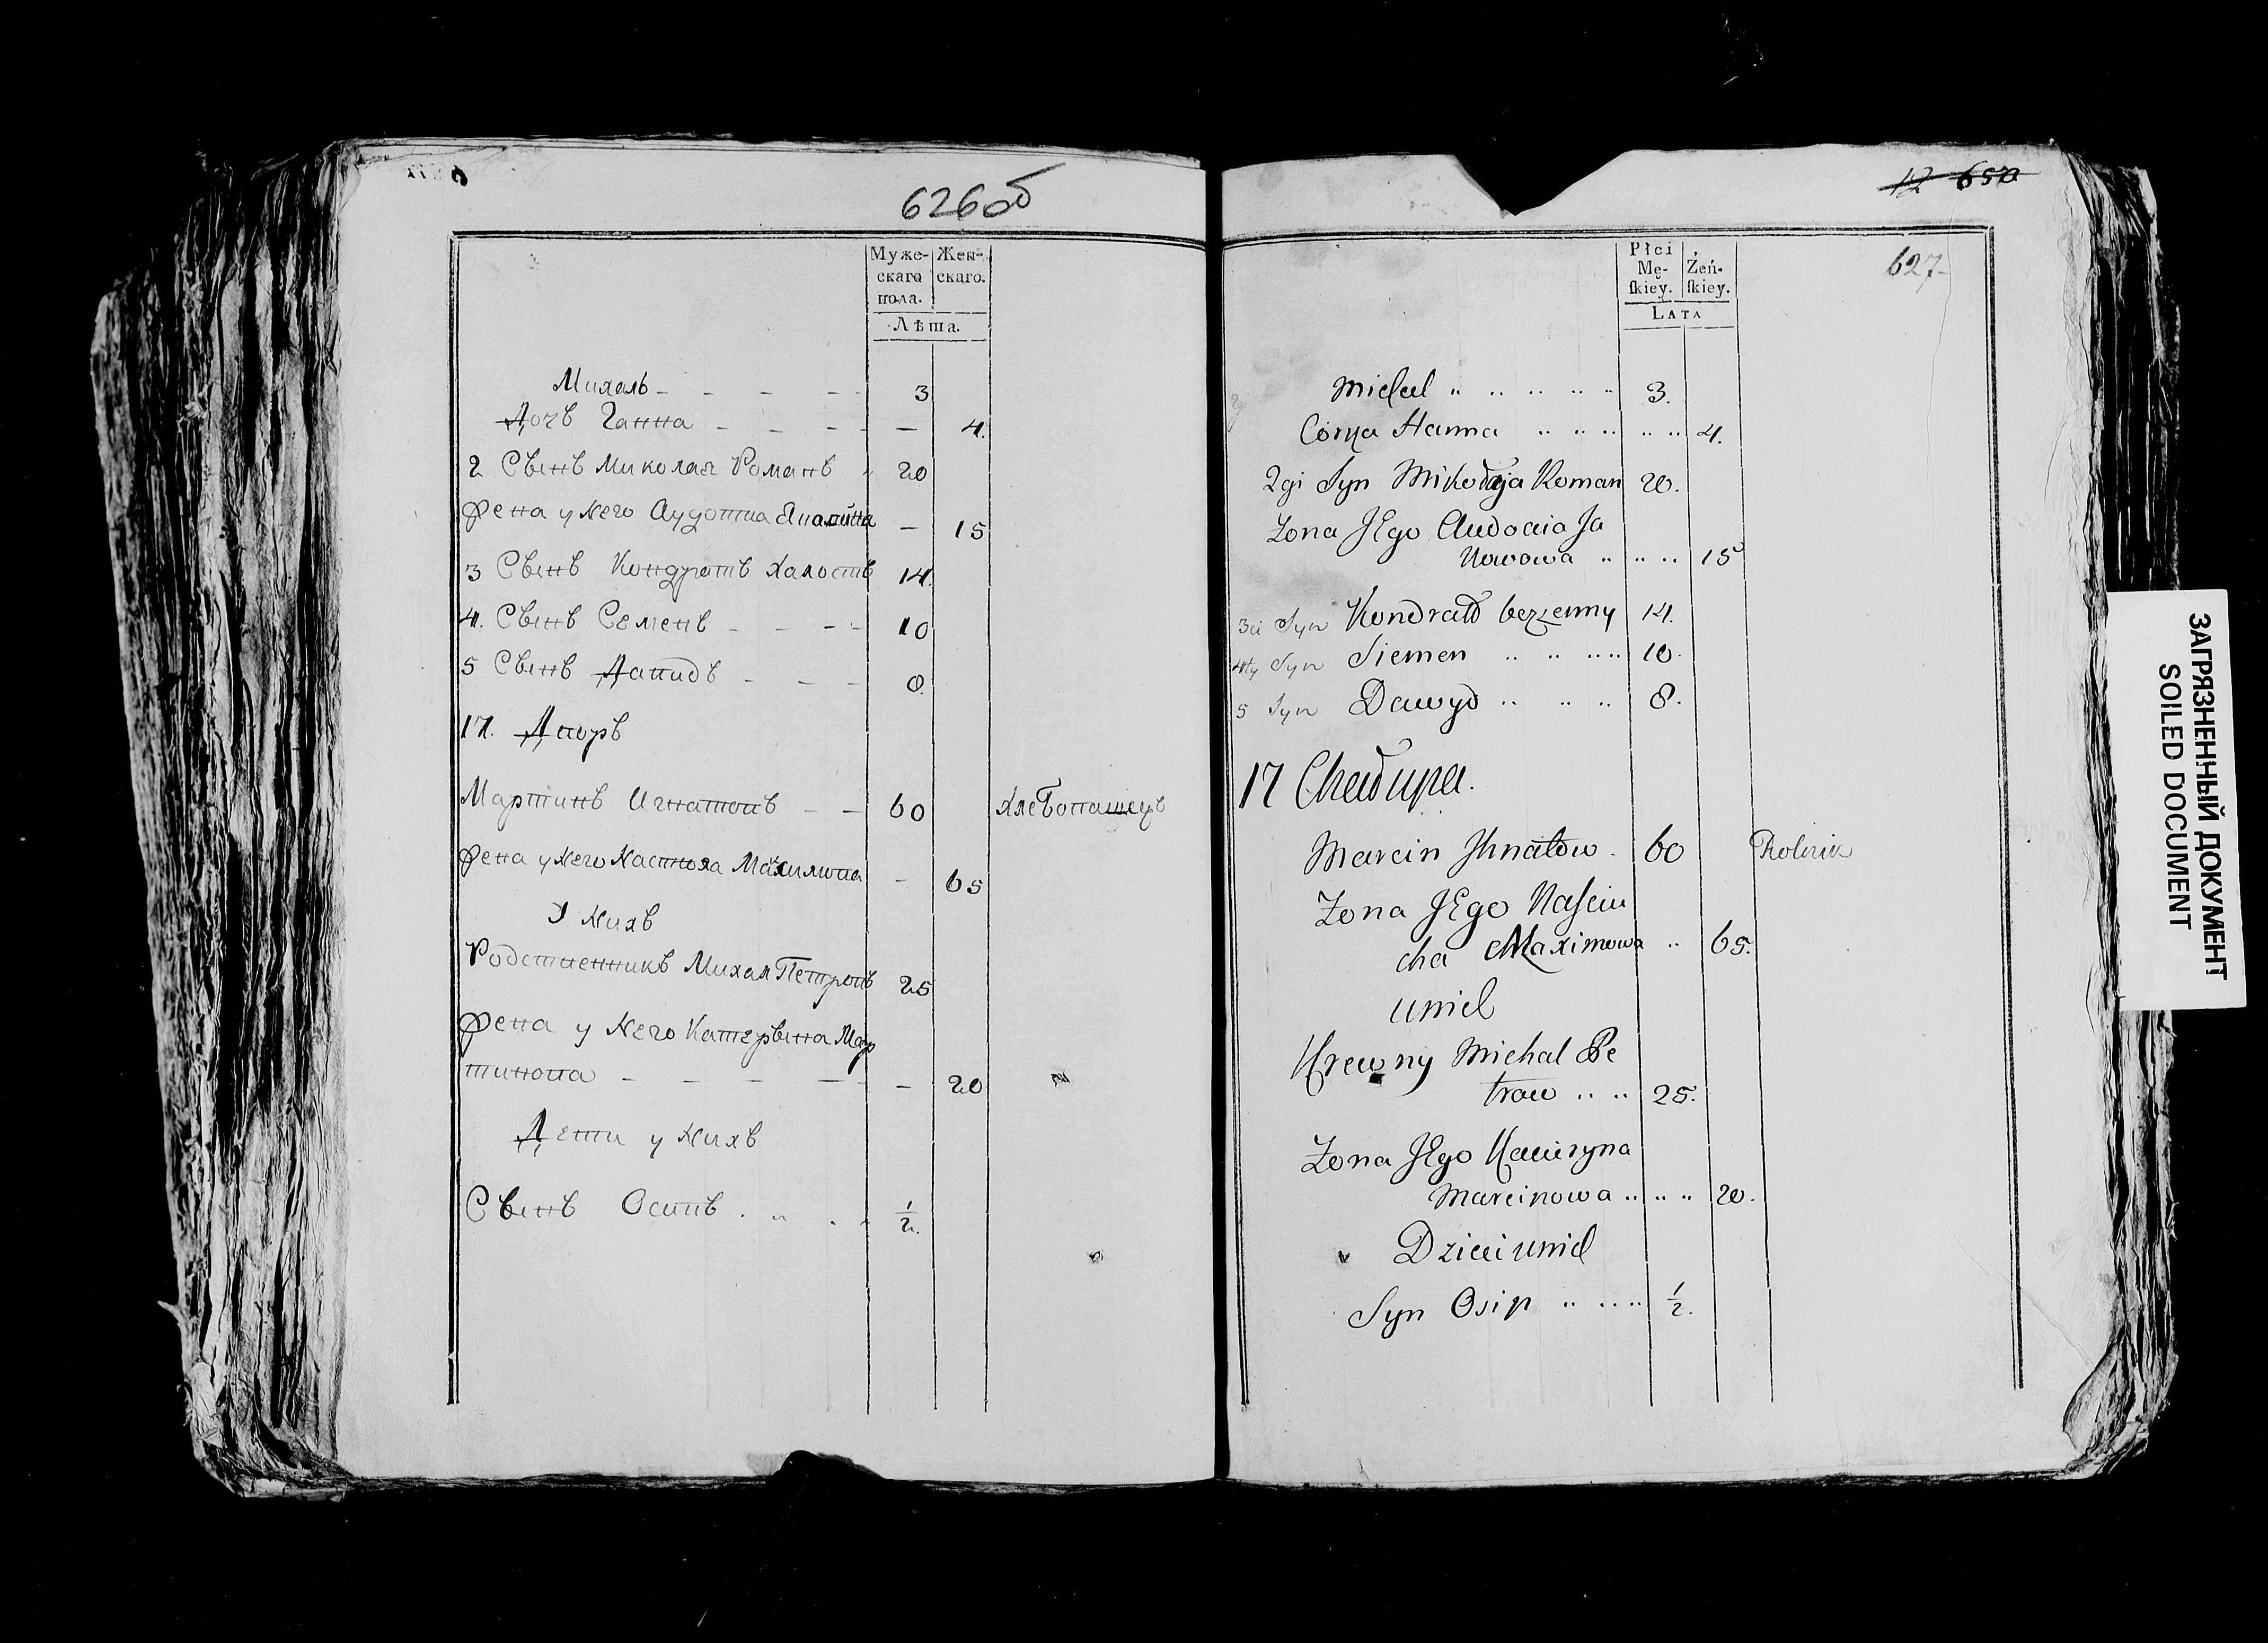 626об
Муже-
скаго
пола.
Жен-
скаго.
Лѣта.
Михаль - - - - 3
Дочъ Ганна - - - - - 4.
2 Сынъ Миколая Романъ 20
Жена у него Аудотиа - 15
3 Сынъ Кондратъ халостъ 14.
4. Сынъ Семенъ - - - - 10
5 Сынъ Давидъ - - - 8.
17. Дворъ
Мартинъ Игнатовъ - - 60 хлебопашецъ
Жена у него Настюха Махимова - 65
У нихъ
Родственникъ Михал Петровъ 25
Жена у него Катерына Мар
тинова - - - - - 20
Дети у нихъ
Сынъ Осипъ 1/2.
12 650
627
Płci
Mę-
ſkiey.
Żeń-
ſkiey.
LATA
Michal 3.
Córka Hanna 4.
2gi Syn Mikołaja Roman 20.
Zona JEgo Audocia Ja
kowowa 15
3ci Syn Kondrat bezzenny 14.
4ty Syn Siemen 10.
5 Syn Dawyd 8.
17 Chałupa.
Marcin Jhnatow. 60 Rolnik
Zona JEgo Naſciu
cha Maximowa 65.
unich
Krewny Michal Pe
trow 25.
Zona JEgo Kaciryna
Marcinowa 20.
Dzieci unich
Syn Osip 1/2.
ЗАГРЯЗНЕННЫЙ ДОКУМЕНТ
SOILED DOCUMENT